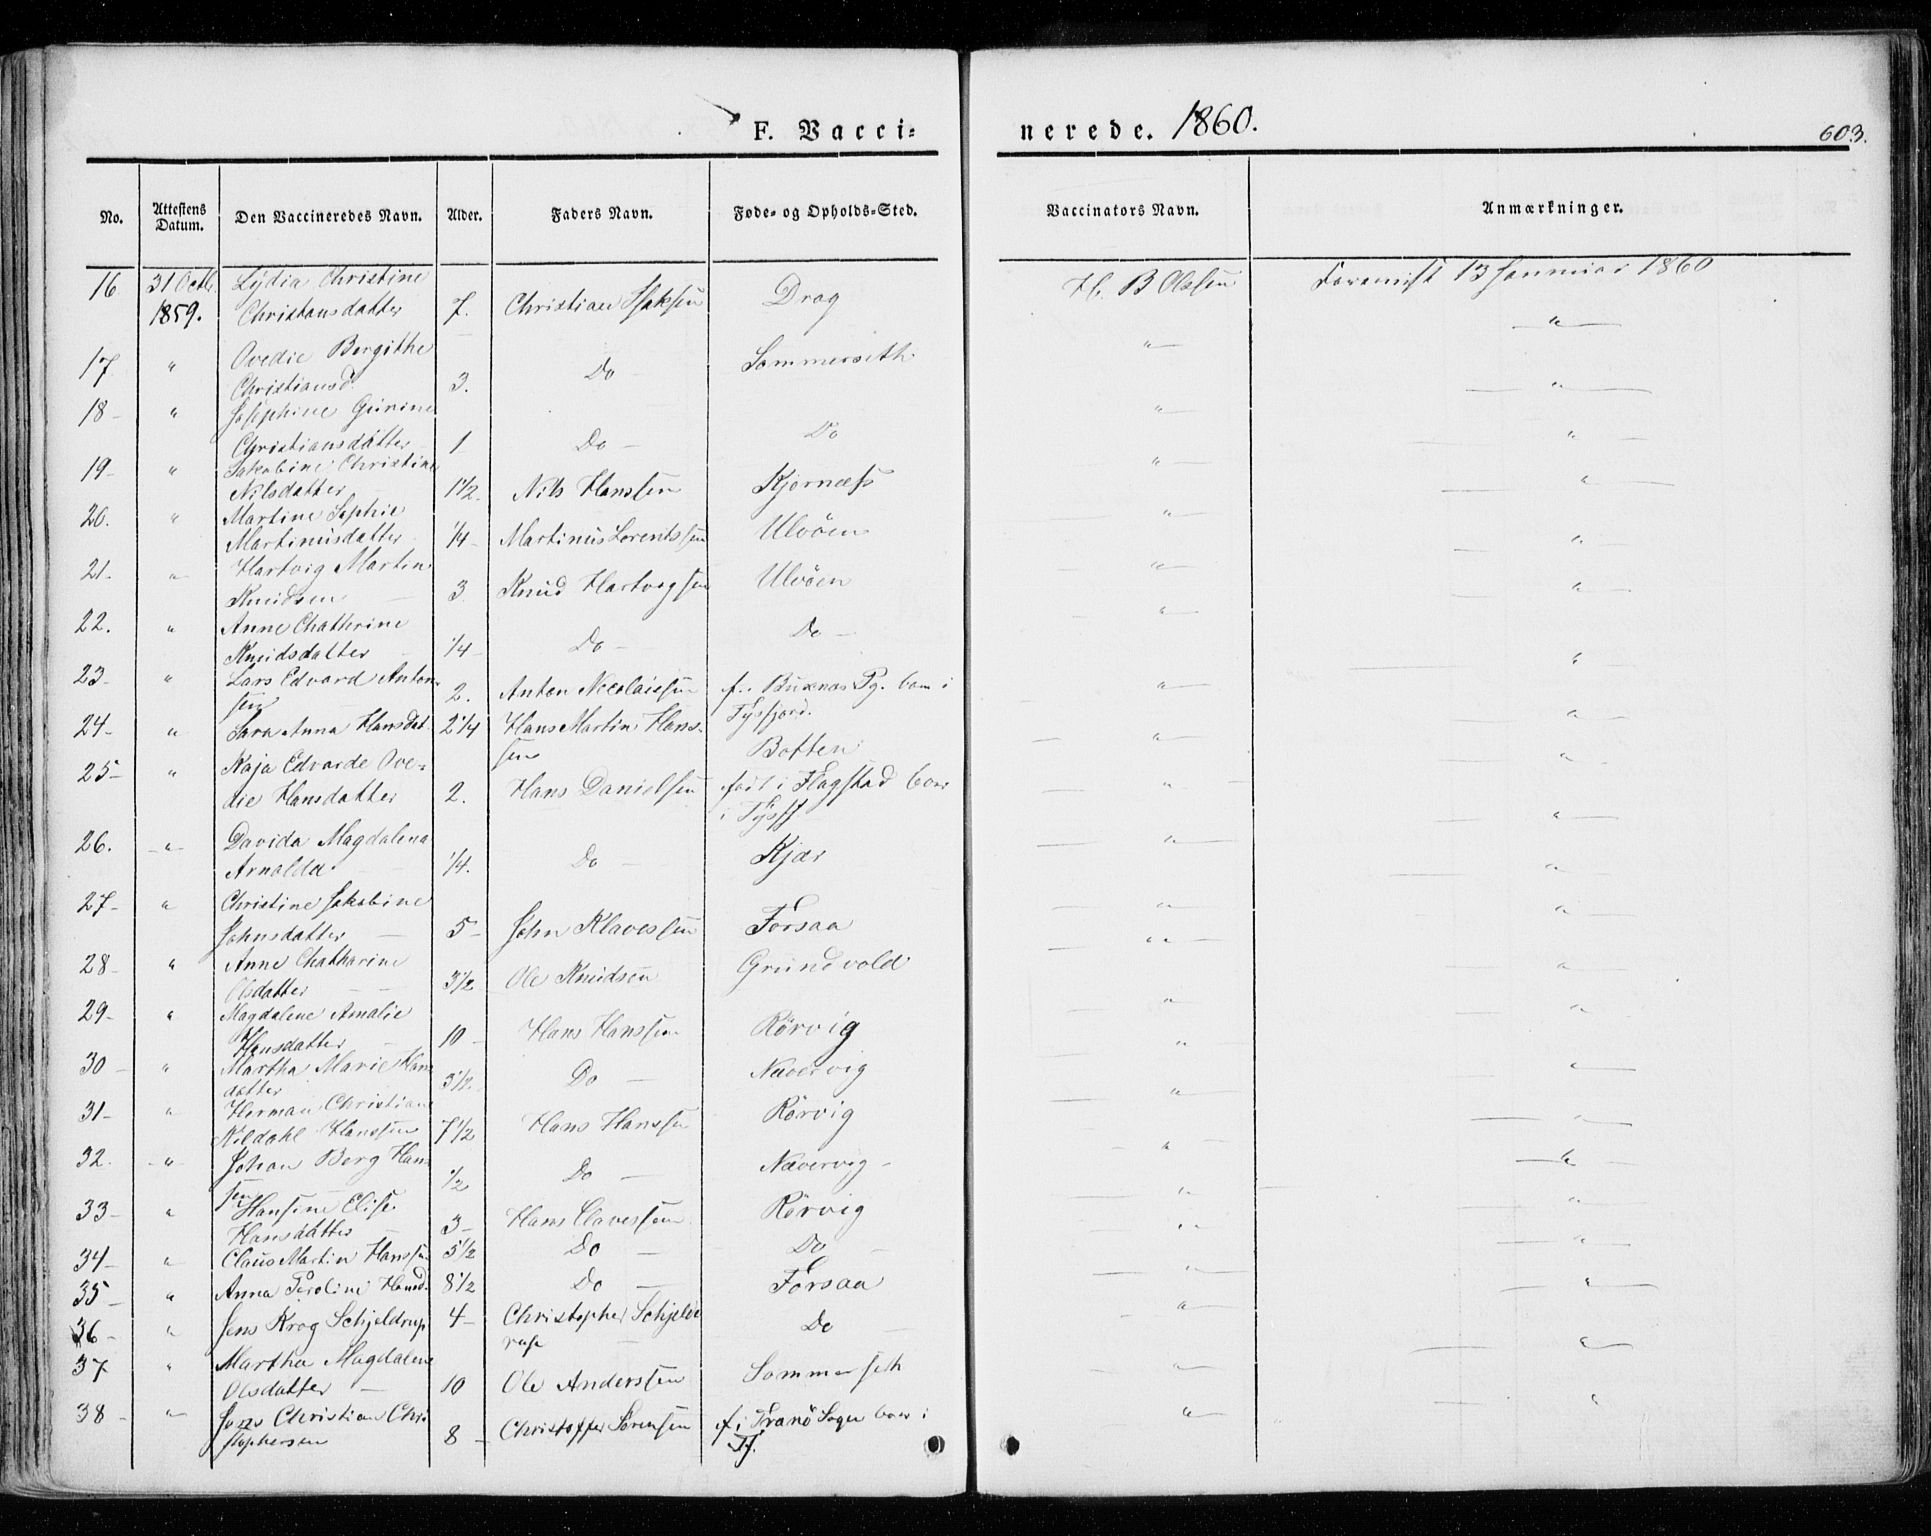 F. Vacci-
nerede. 1860.
603.
No. Attestens Datum. Den Vaccineredes Navn. Alder. Faders Navn. Føde- og Opholds-Sted. Vaccinators Navn. Anmærkninger.
16 31 Octb. Lydia Christine
1859. Christansdatter 7. Christian Isaksen Drag H. B Olssen 13 Januar 1860
17 " Ovedie Bergithe
Christiansd. 3. Do Sommerseth " "
18 - " Josephine Gurine
Christiansdatter 1 Do - Do " "
19 - " Jakobine Christine
Nilsdatter 1 1/2. Nils Hanssen Kjørnæss " "
20. " Martine Sophie
Martinusdatter 1/4 - Martinus Lorentssen Ulvøen " "
21. " Hartvig Martin
Knudsen 3. Knud Hartvigsen Ulvøen " "
22. " Anne Chathrine
Knudsdatter 1/4 - Do - Do - " "
23 - " Lars Edvard Anton-
sen 2. Anton Nicolaissen f. i Buxnæs Pg. boer i
Tysfjord. " "
24 - " Sara Anna Hansdat 2 1/4 Hans Martin Hans-
sen Botten " "
25 - " Kaja Edvarde Ove-
die Hansdatter 2. Hans Danielsen født i Flagstad boer
i Tysf " "
26. " Davida Magdalena
Arnolda 1/4. Do - Kjær " "
27 - " Christine Jakobine
Johnsdatter 5 - John Klavessen Forsaa " "
28 - " Anne Chatharine
Olsdatter 3 1/2 Ole Knudsen Grundvold " "
29 - " Magdalene Amalie
Hansdatter 10 - Hans Hanssen Rørvig " "
30 - " Martha Marie Han
datter 3 1/2. Do - Nævervig " "
31 - " Herman Christian
Nildahl Hanssen 7 1/2 Hans Hanssen Rørvig " "
32. " Johan Berg Hans
sen 1/2 Do - Nævervig - " "
33 - " Hansine Elise
Hansdatter 3 - Hans Clavessen Rørvig " "
34 - " Claus Martin Hanssen 5 1/2 Do - Do - " "
35 - " Anna Karoline Hansd. 8 1/2 Do - Forsaa " "
36 - " Jens Krog Schjeldrup 4 - Christopher Schjeld
rup Do " "
37 " Martha Magdalene
Olsdatter - 10 Ole Anderssen Sommerseth " "
38 - " Jens Christian Chri
stophersen 8 - Christoffer Sørensen f. i Tranø Sogn boer i
Tf. " "